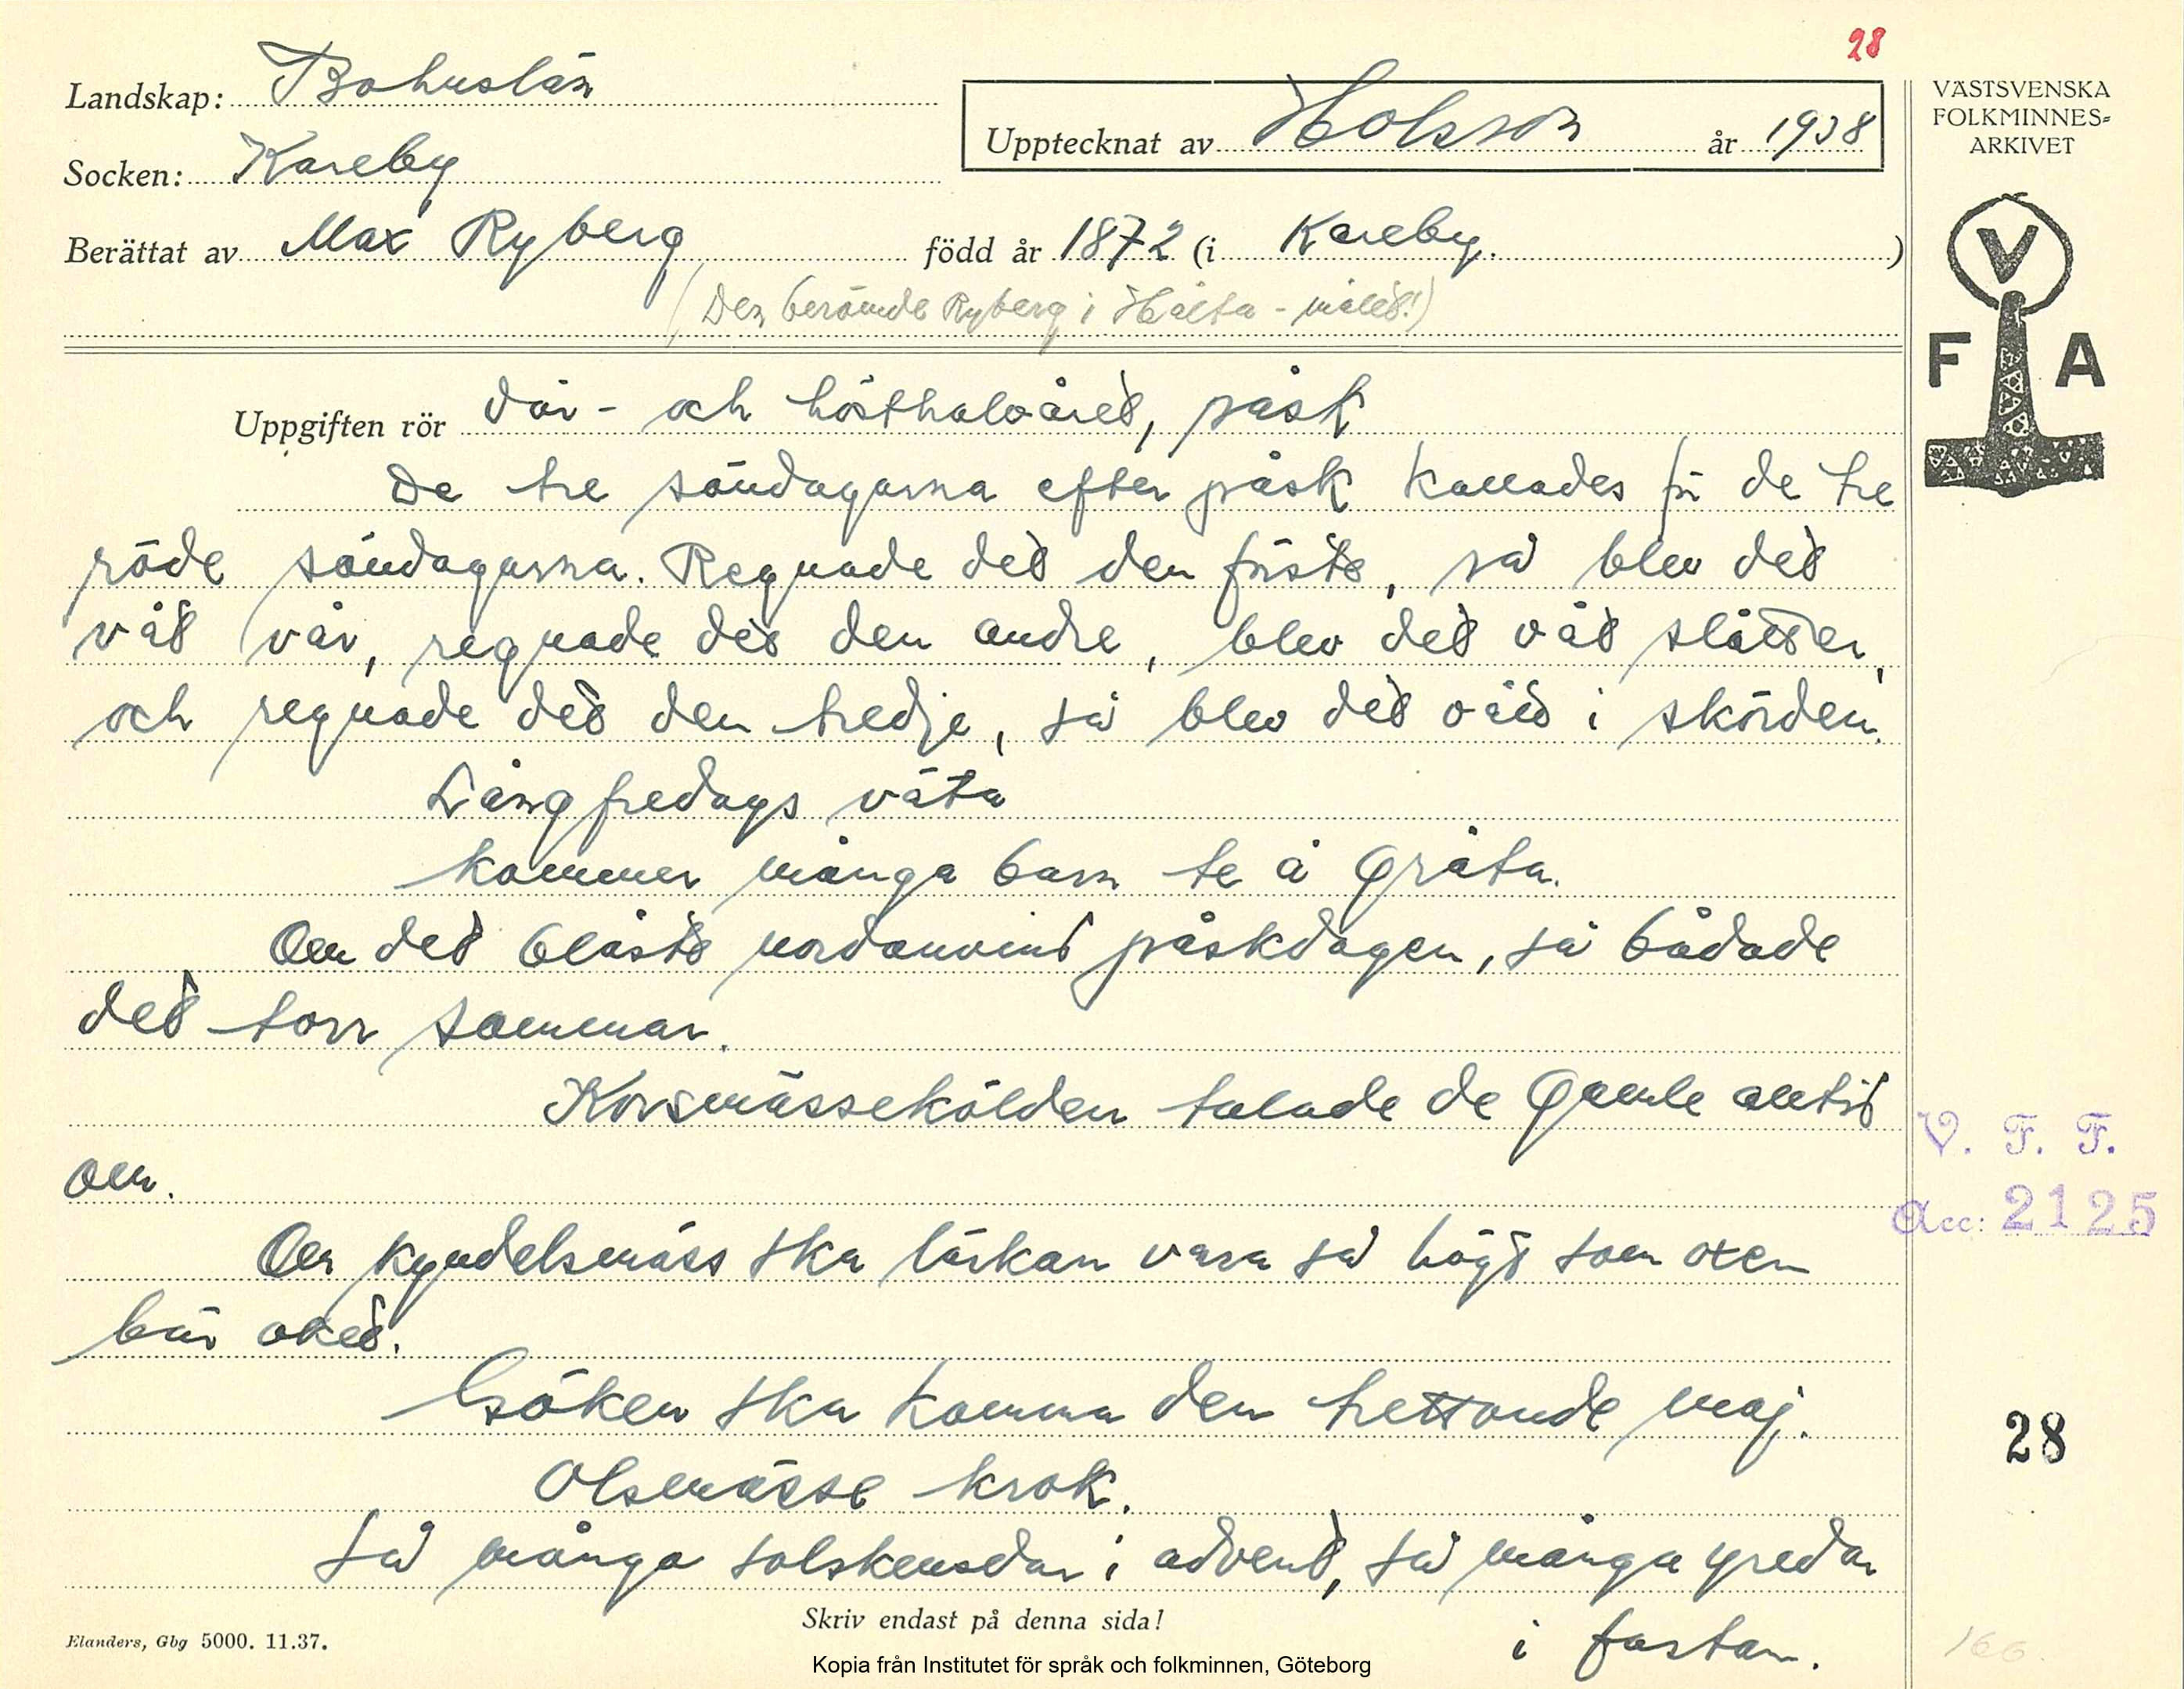 28
Landskap: Bohuslän
Upptecknat av Holsson år 1938
VÄSTSVENSKA
FOLKMINNES-
ARKIVET
Socken: Kareby
Berättat av Max Ryberg född år 1872 (i Kareby. )
(Den berömde Ryberg i Hålta-målet!)
V
F A
Uppgiften rör vår- och hösthalvåret, påsk
De tre söndagarna efter påsk kallades för de tre
röde söndagarna. Regnade det den första, så blev det
våt vår, regnade det den andre, blev det våt slåtter,
och regnade det den tredje, så blev det vått i skörden.
Långfredags väta
kommer många barn te å gråta.
Om det blåste nordanvind påskdagen, så bådade
det torr sommar.
Korsmässekölden talade de gamle alltid
om.
Om kyndelsmäss ska lärkan vara så högt som oxen
bär oket.
Göken ska komma den trettonde maj.
Olsmässe krok.
Så många solskensdar i advent, så många yredar
i fastan.
V. F. F.
Acc: 2125
28
Skriv endast på denna sida!
Elanders, Gbg 5000. 11.37.
Kopia från Institutet för språk och folkminnen, Göteborg
166.